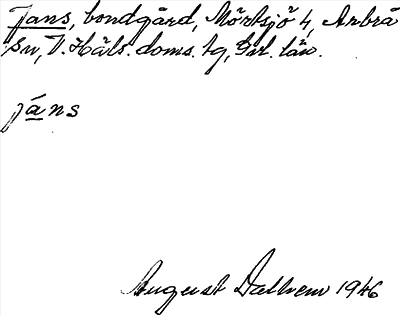 Jans, bondgård, Mörtsjö 4, Arbrå
sn, V. Häls. doms. tg, Gvl. län.
jans
August Dalhem 1946